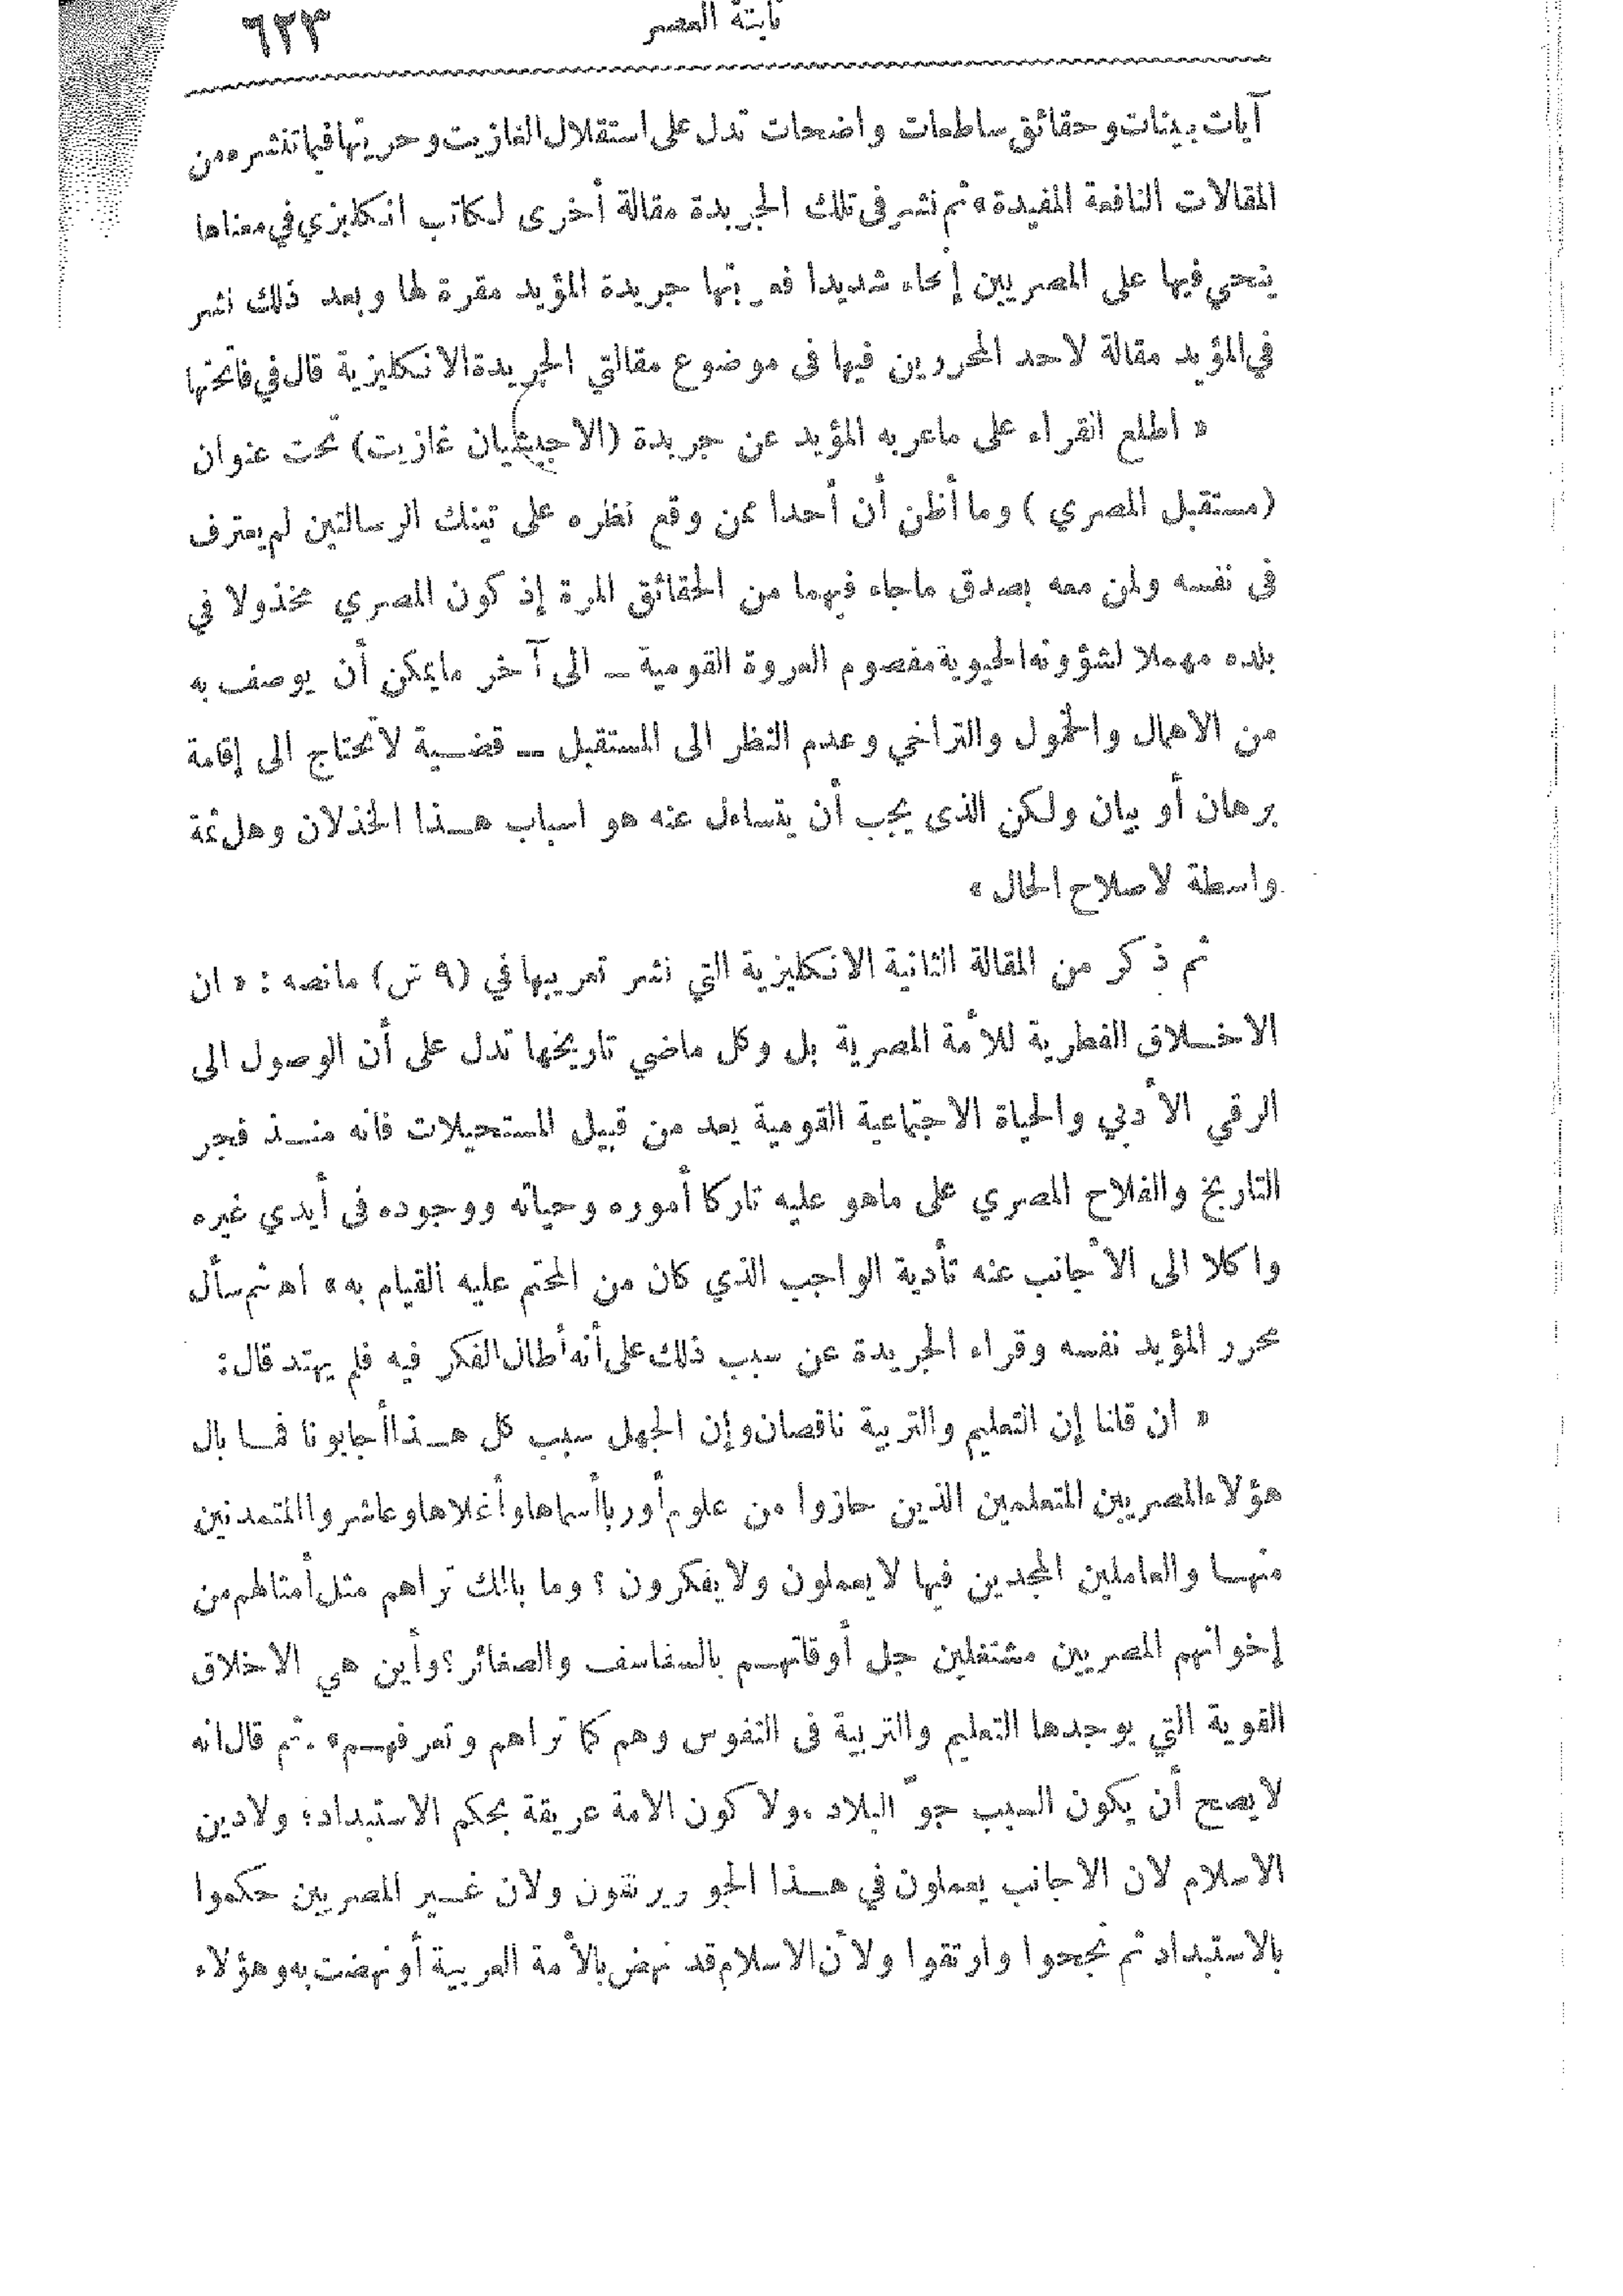 نابتة العصر
٦٢٣
آيات بينات وحقائق ساطعات واضحات تدل على استقلال الغازيت وحريتها فيما تنشره من
المقالات النافعة المفيدة» ثم نشر فى تلك الجريدة مقالة أخرى لكاتب انكليزي في معناها
ينحي فيها على المصريين إنحاء شديدا فعربتها جريدة المؤيد مقرة لها وبعد ذلك نشر
في المؤيد مقالة لاحد المحررين فيها فى موضوع مقالتي الجريدة الانكليزية قال في فاتحتها
« اطلع القراء على ماعربه المؤيد عن جريدة (الاجبشيان غازيت) تحت عنوان
(مستقبل المصري ) وما أظن أن أحدا ممن وقع نظره على تينك الرسالتين لم يعترف
فى نفسه ولمن معه بصدق ماجاء فيهما من الحقائق المرة إذ كون المصري مخذولا في
بلده مهملا لشؤونه الحيوية مفصوم العروة القومية ــ الى آخر مايمكن أن يوصف به
من الاهمال والخمول والتراخي وعدم النظر الى المستقبل ــ قضية لاتحتاج الى إقامة
برهان أو بيان ولكن الذى يجب أن يتساءل عنه هو اسباب هذا الخذلان وهل ثمة
واسطة لاصلاح الحال »
ثم ذكر من المقالة الثانية الانكليزية التي نشر تعريبها في (٩ ش) مانصه : « ان
الاخلاق الفطرية للأمة المصرية بل وكل ماضي تاريخها تدل على أن الوصول الى
الرقي الأدبي والحياة الاجتماعية القومية يعد من قبيل المستحيلات فانه منذ فجر
التاريخ والفلاح المصري على ماهو عليه تاركا أموره وحياته ووجوده فى أيدي غيره
واكلا الى الأجانب عنه تأدية الواجب الذي كان من المحتم عليه القيام به » اه ثم سأل
محرر المؤيد نفسه وقراء الجريدة عن سبب ذلك على أنه أطال الفكر فيه فلم يهتد قال:
« ان قلنا إن التعليم والتربية ناقصان وإن الجهل سبب كل هذا أجابونا فما بال
هؤلاء المصريين المتعلمين الذين حازوا من علوم أوربا أسماها وأغلاها وعاشروا المتمدنين
منها والعاملين المجدين فيها لايعملون ولايفكرون ؟ وما بالك تراهم مثل أمثالهم من
إخوانهم المصريين مشتغلين جل أوقاتهم بالسفاسف والصغائر؟ وأين هي الاخلاق
القوية التي يوجدها التعليم والتربية فى النفوس وهم كما تراهم وتعرفهم» . ثم قال انه
لايصح أن يكون السبب جوّ البلاد ، ولا كون الامة عريقة بحكم الاستبداد؛ ولادين
الاسلام لان الاجانب يعملون في هذا الجو ويرتقون ولان غير المصريين حكموا
بالاستبداد ثم نجحوا وارتقوا ولأن الاسلام قد نهض بالأمة العربية أو نهضت به وهؤلاء